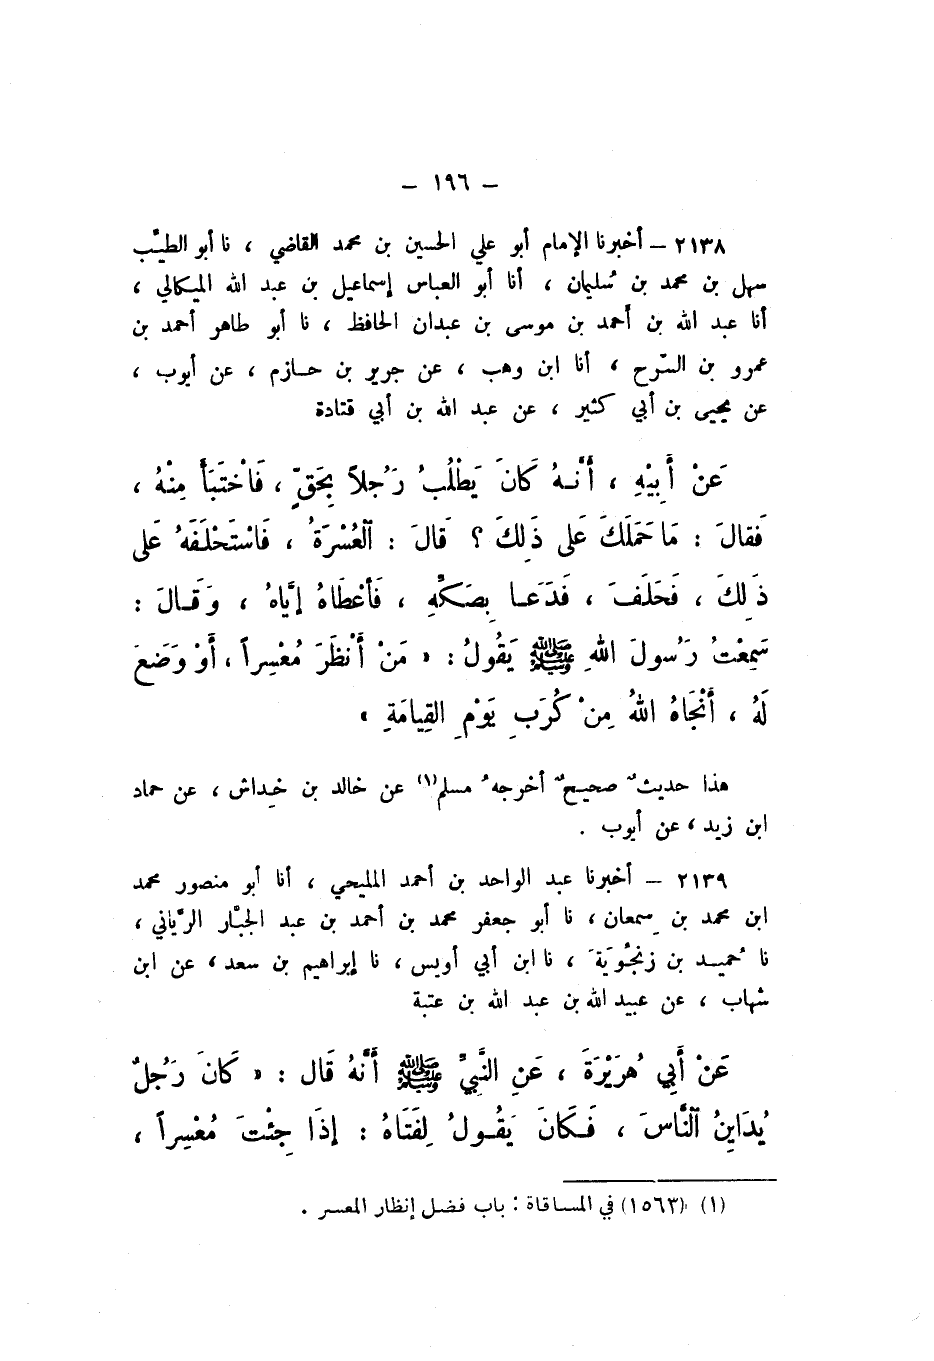 – ١٩٦ –
٢١٣٨ – أخبرنا الإمام أبو علي الحسين بن محمد القاضي ، نا أبو الطيّب
سهل بن محمد بن سُليمان ، أنا أبو العباس إسماعيل بن عبد الله الميكالي ،
أنا عبد الله بن أحمد بن موسى بن عبدان الحافظ ، نا أبو طاهر أحمد بن
عمرو بن السّرح ، أنا ابن وهب ، عن جرير بن حازم ، عن أيوب ،
عن يحيى بن أبي كثير ، عن عبد الله بن أبي قتادة
عَنْ أَبِيْهِ ، أَنَّهُ كَانَ يَطْلُبُ رَجُلاً بِحَقٍّ ، فَاخْتَبَأَ مِنْهُ ،
فَقالَ : مَا حَمَلَكَ عَلى ذَلِكَ ؟ قَالَ : اَلْعُسْرَةُ ، فَاسْتَحْلَفَهُ عَلى
ذَلِكَ ، فَحَلَفَ ، فَدَعَا بِصَكِّهِ ، فَأَعْطَاهُ إِيَّاهُ ، وَقَالَ :
سَمِعْتُ رَسُولَ اللهِ ﷺ يَقُولُ : « مَنْ أَنْظَرَ مُعْسِراً ، أَوْ وَضَعَ
لَهُ ، أَنْجَاهُ اللهُ مِنْ كُرَبِ يَوْمِ القِيامَةِ »
هذا حديثٌ صحيحٌ أخرجهُ مسلم(١) عن خالد بن خِداش ، عن حماد
ابن زيد ، عن أيوب .
٢١٣٩ – أخبرنا عبد الواحد بن أحمد المليحي ، أنا أبو منصور محمد
ابن محمد بن سِمعان ، نا أبو جعفر محمد بن أحمد بن عبد الجبّار الرَّياني ،
نا حُميد بن زنجُويَةَ ، نا ابن أبي أويس ، نا إبراهيم بن سعد ، عن ابن
شهاب ، عن عبيد الله بن عبد الله بن عتبة
عَنْ أَبِي هُرَيْرَةَ ، عَنِ النَّبِيِّ ﷺ أَنَّهُ قَال : « كَانَ رَجُلٌ
يُدَايِنُ اَلنَّاسَ ، فَكَانَ يَقُولُ لِفَتَاهُ : إِذَا جِئْتَ مُعْسِراً ،
(١) (١٥٦٣) في المساقاة : باب فضل إنظار المعسر .